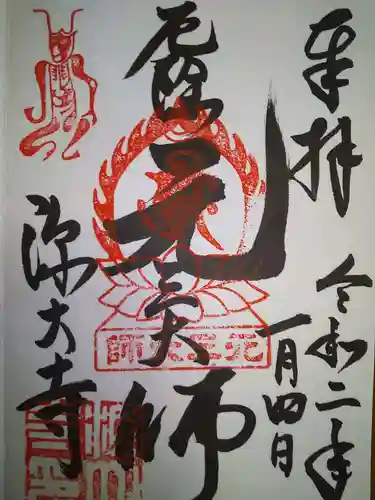 奉拝
令和二年
一月四日
厄除
元三大師
元三大師
深大寺